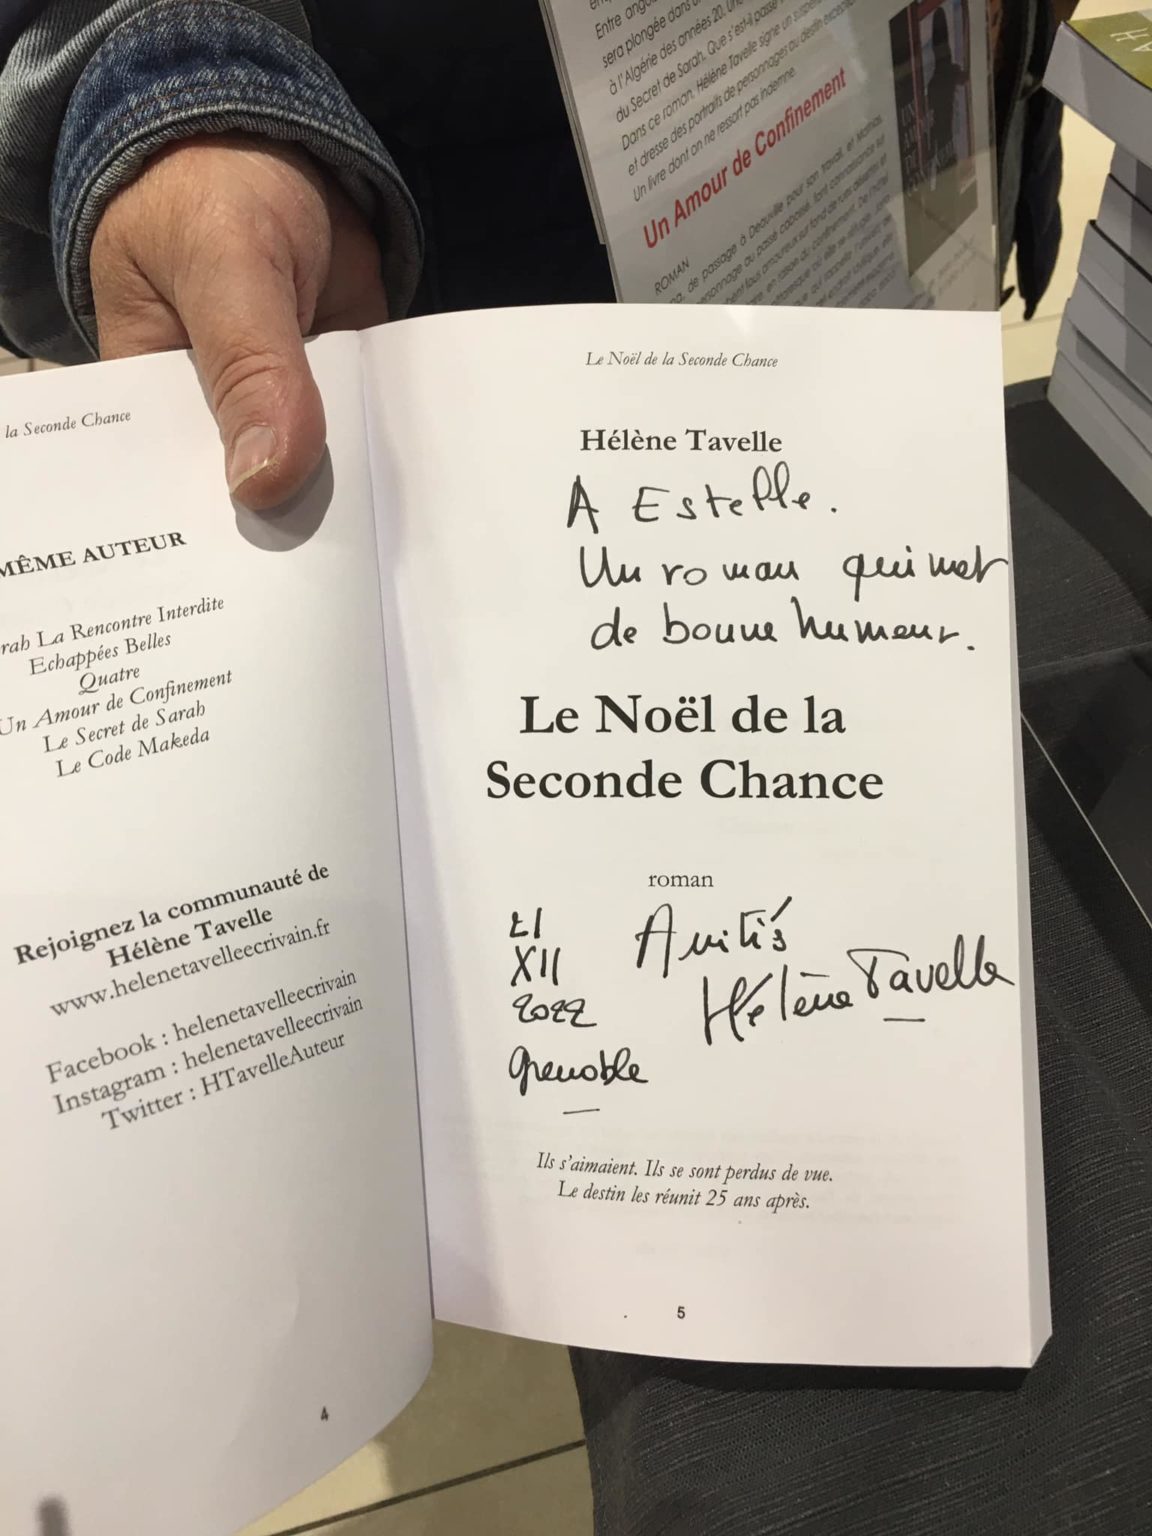 la Seconde Chance
MÊME AUTEUR
rah La Rencontre Interdite
Echappées Belles
Quatre
Un Amour de Confinement
Le Secret de Sarah
Le Code Makeda
Rejoignez la communauté de
Hélène Tavelle
www.helenetavelleecrivain.fr
Facebook : helenetavelleecrivain
Instagram : helenetavelleecrivain
Twitter : HTavelleAuteur
4
Le Noël de la Seconde Chance
Hélène Tavelle
A Estelle.
Un roman qui met
de bonne humeur.
Le Noël de la
Seconde Chance
roman
21
XII
2022
Grenoble
Amitiés
Hélène Tavelle
Ils s'aimaient. Ils se sont perdus de vue.
Le destin les réunit 25 ans après.
5
Entre
sera plongée dans
à l'Algérie des années 20.
du Secret de Sarah. Que s'est-il passé
Dans ce roman, Hélène Tavelle signe un
et dresse des portraits de personnages au destin
Un livre dont on ne ressort pas indemne.
Un Amour de Confinement
ROMAN
de passage à Deauville pour son travail, et